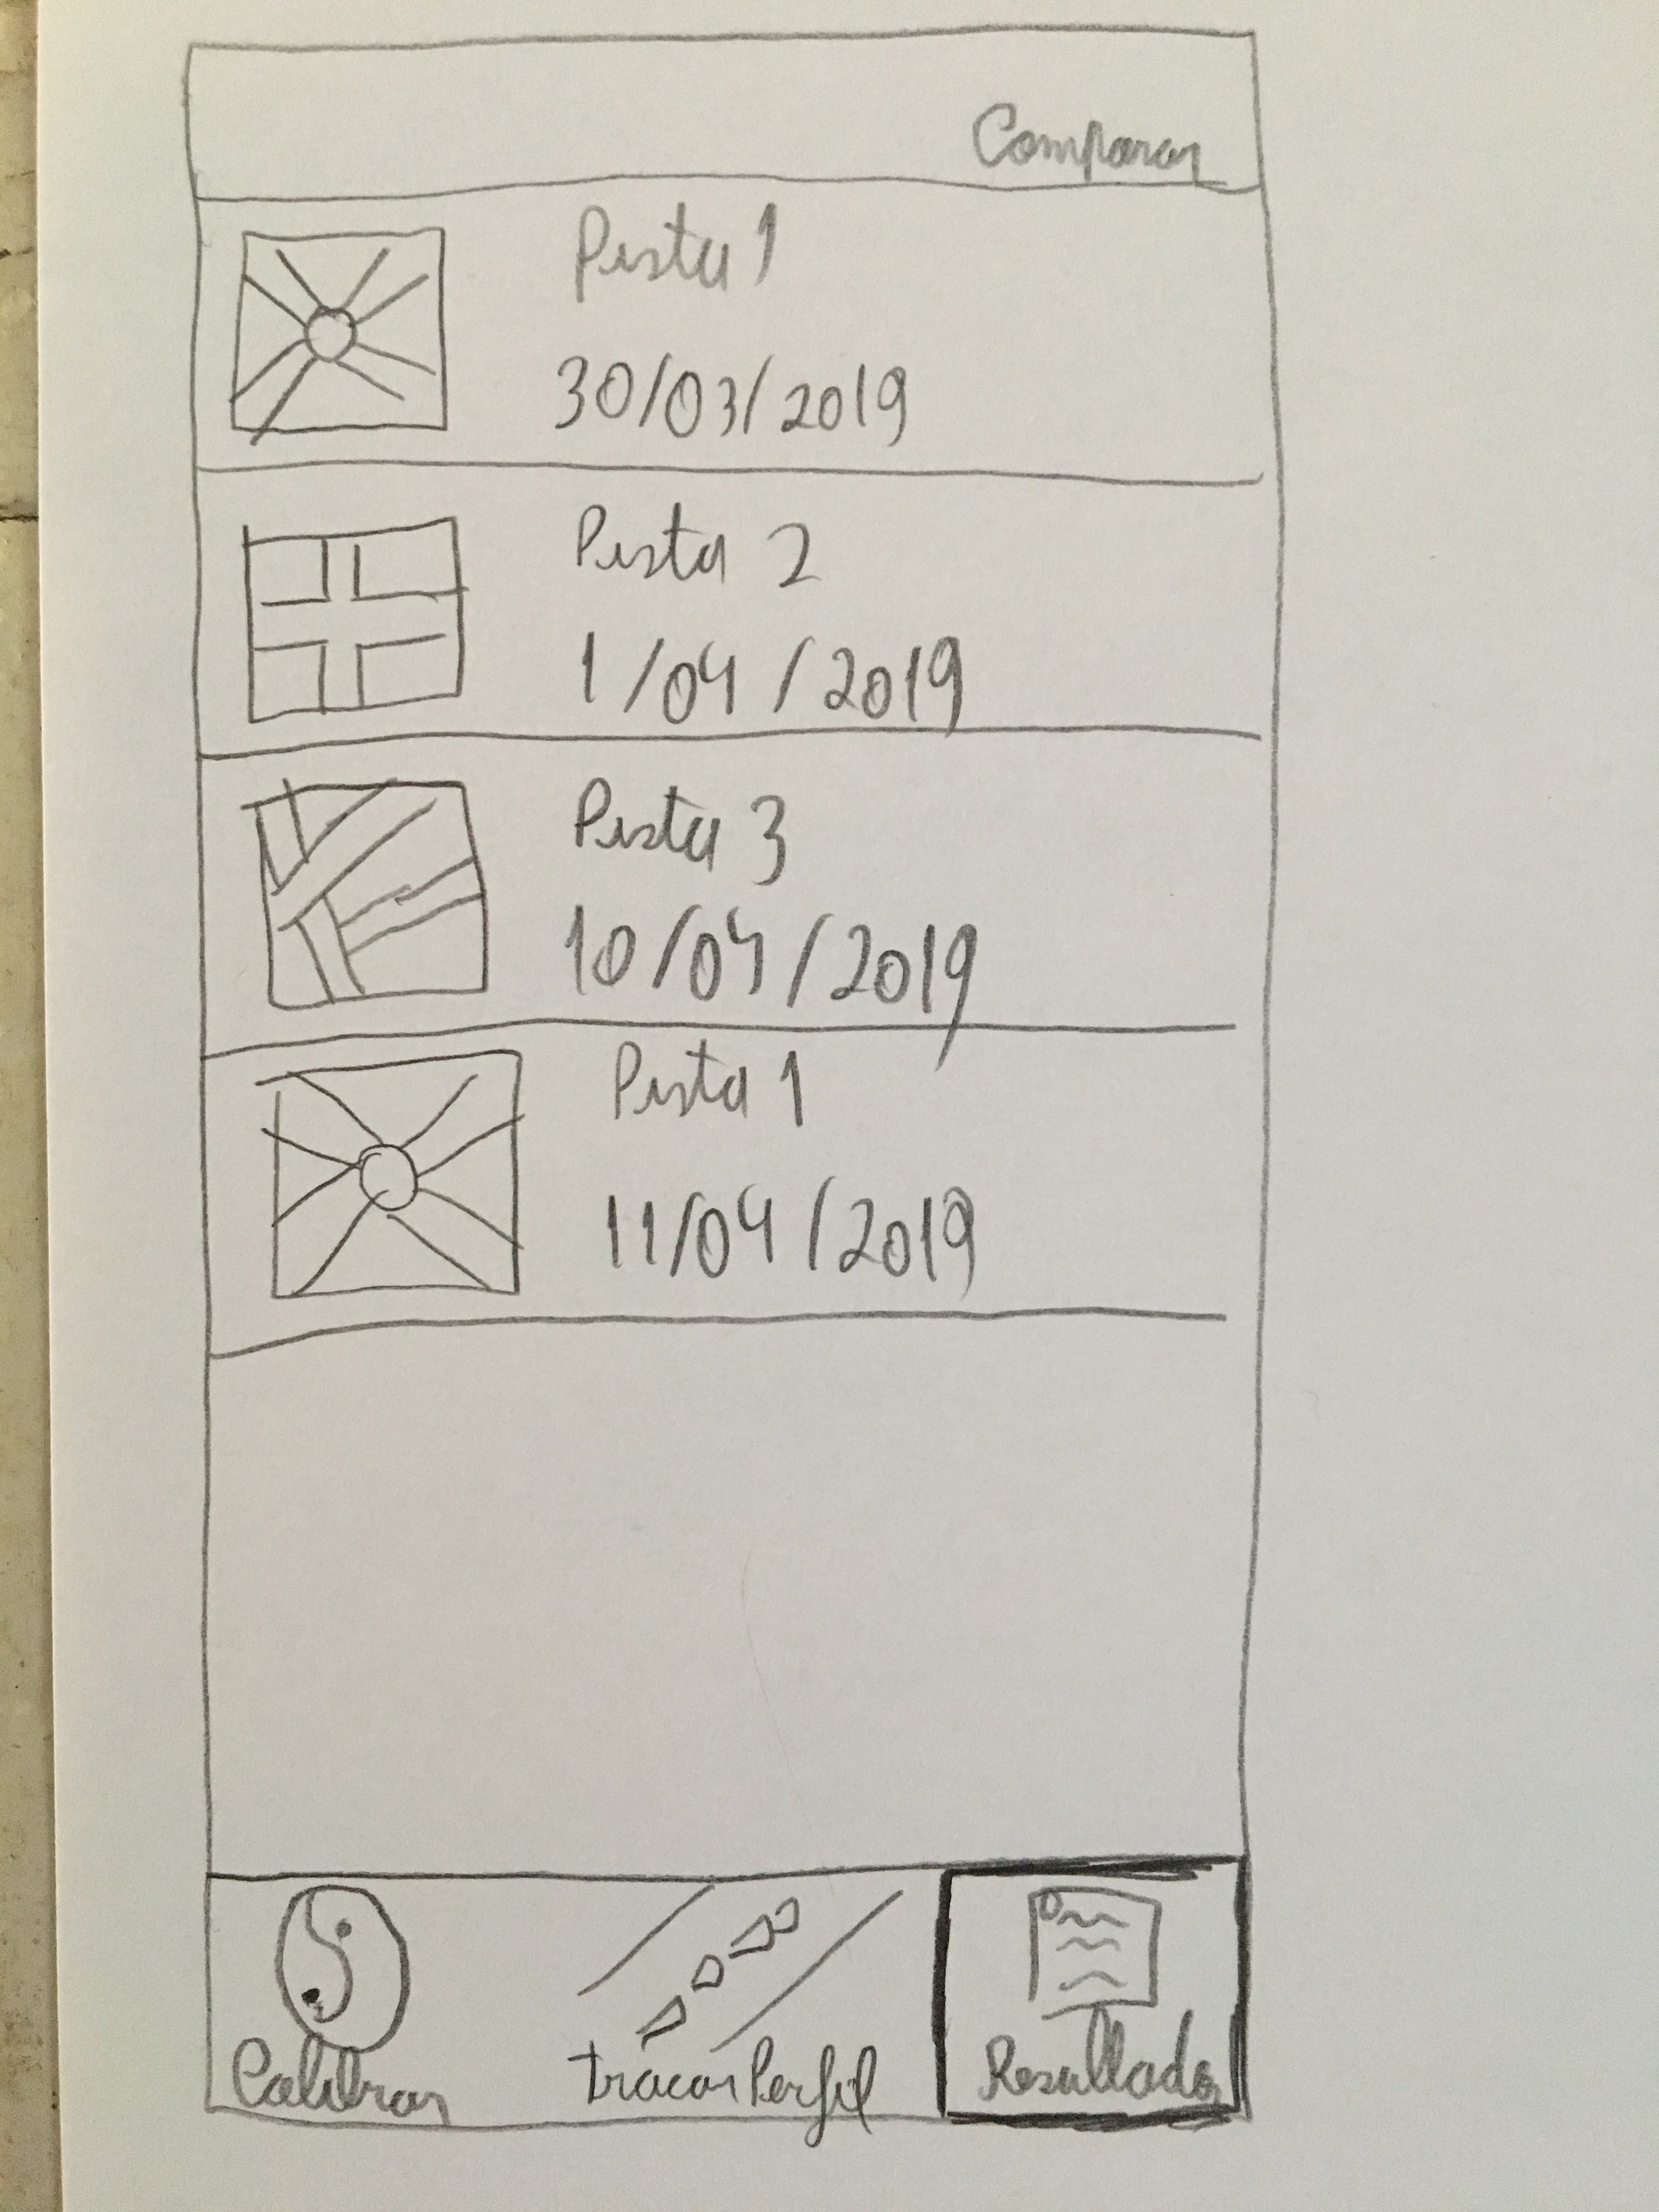 Comparar
Pista 1
30/03/2019
Pista 2
1/04/2019
Pista 3
10/04/2019
Pista 1
11/04/2019
Calibrar tracar Perfil Resultados